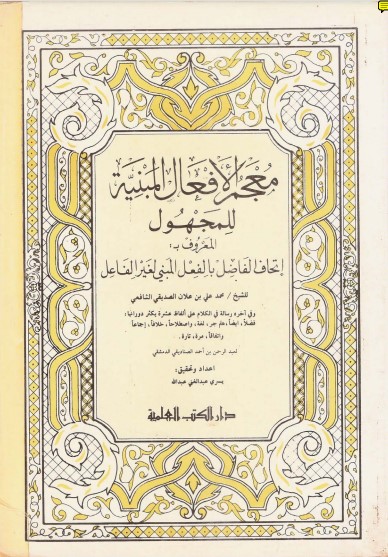 معجم الأفعال المبنية
للمجهول
المعروف بـ:
إتحاف الفاضل بالفعل المبني لغير الفاعل
للشيخ / محمد علي بن علان الصديقي الشافعي
وفي آخره رسالة في الكلام على ألفاظ عشرة يكثر دورانها:
فضلاً، أيضاً، هلم جر، لغة، واصطلاحاً، خلافاً، إجماعاً
واتفاقاً، مرة، تارة.
لعبد الرحمن بن أحمد الصناديقي الدمشقي
اعداد وتحقيق:
يسري عبدالغني عبدالله
دار الكتب العلمية